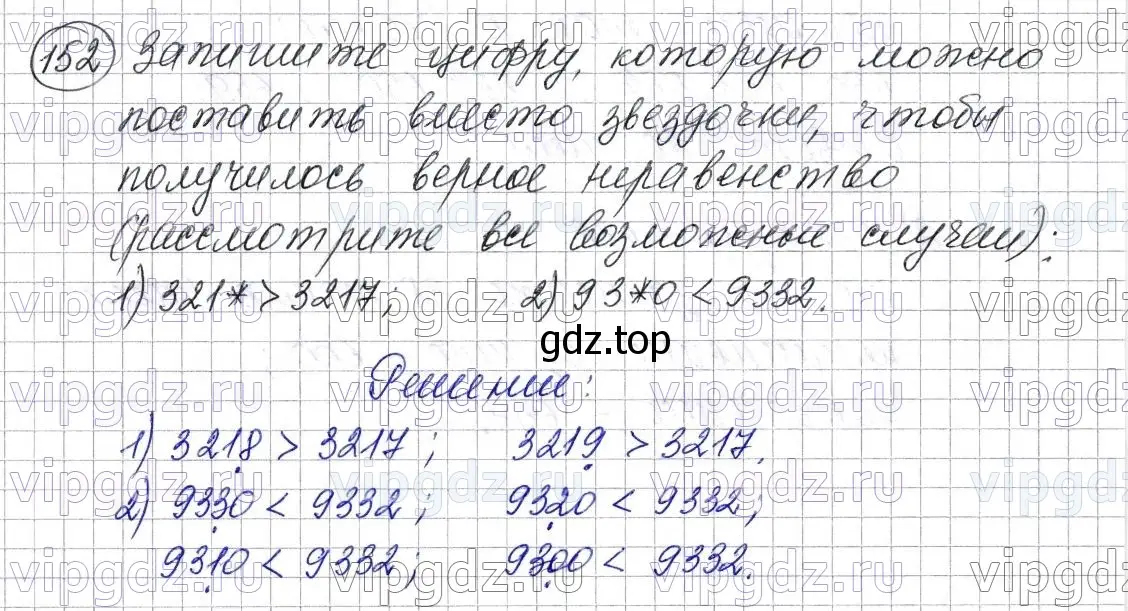 152 Запишите цифру, которую можно
поставить вместо звездочки, чтобы
получилось верное неравенство
(рассмотрите все возможные случаи):
1) 321*>3217; 2) 93*0<9332.
gdz.top
Решение:
1) 3218 > 3217; 3219 > 3217.
2) 9330 < 9332; 9320 < 9332;
9310 < 9332; 9300 < 9332.